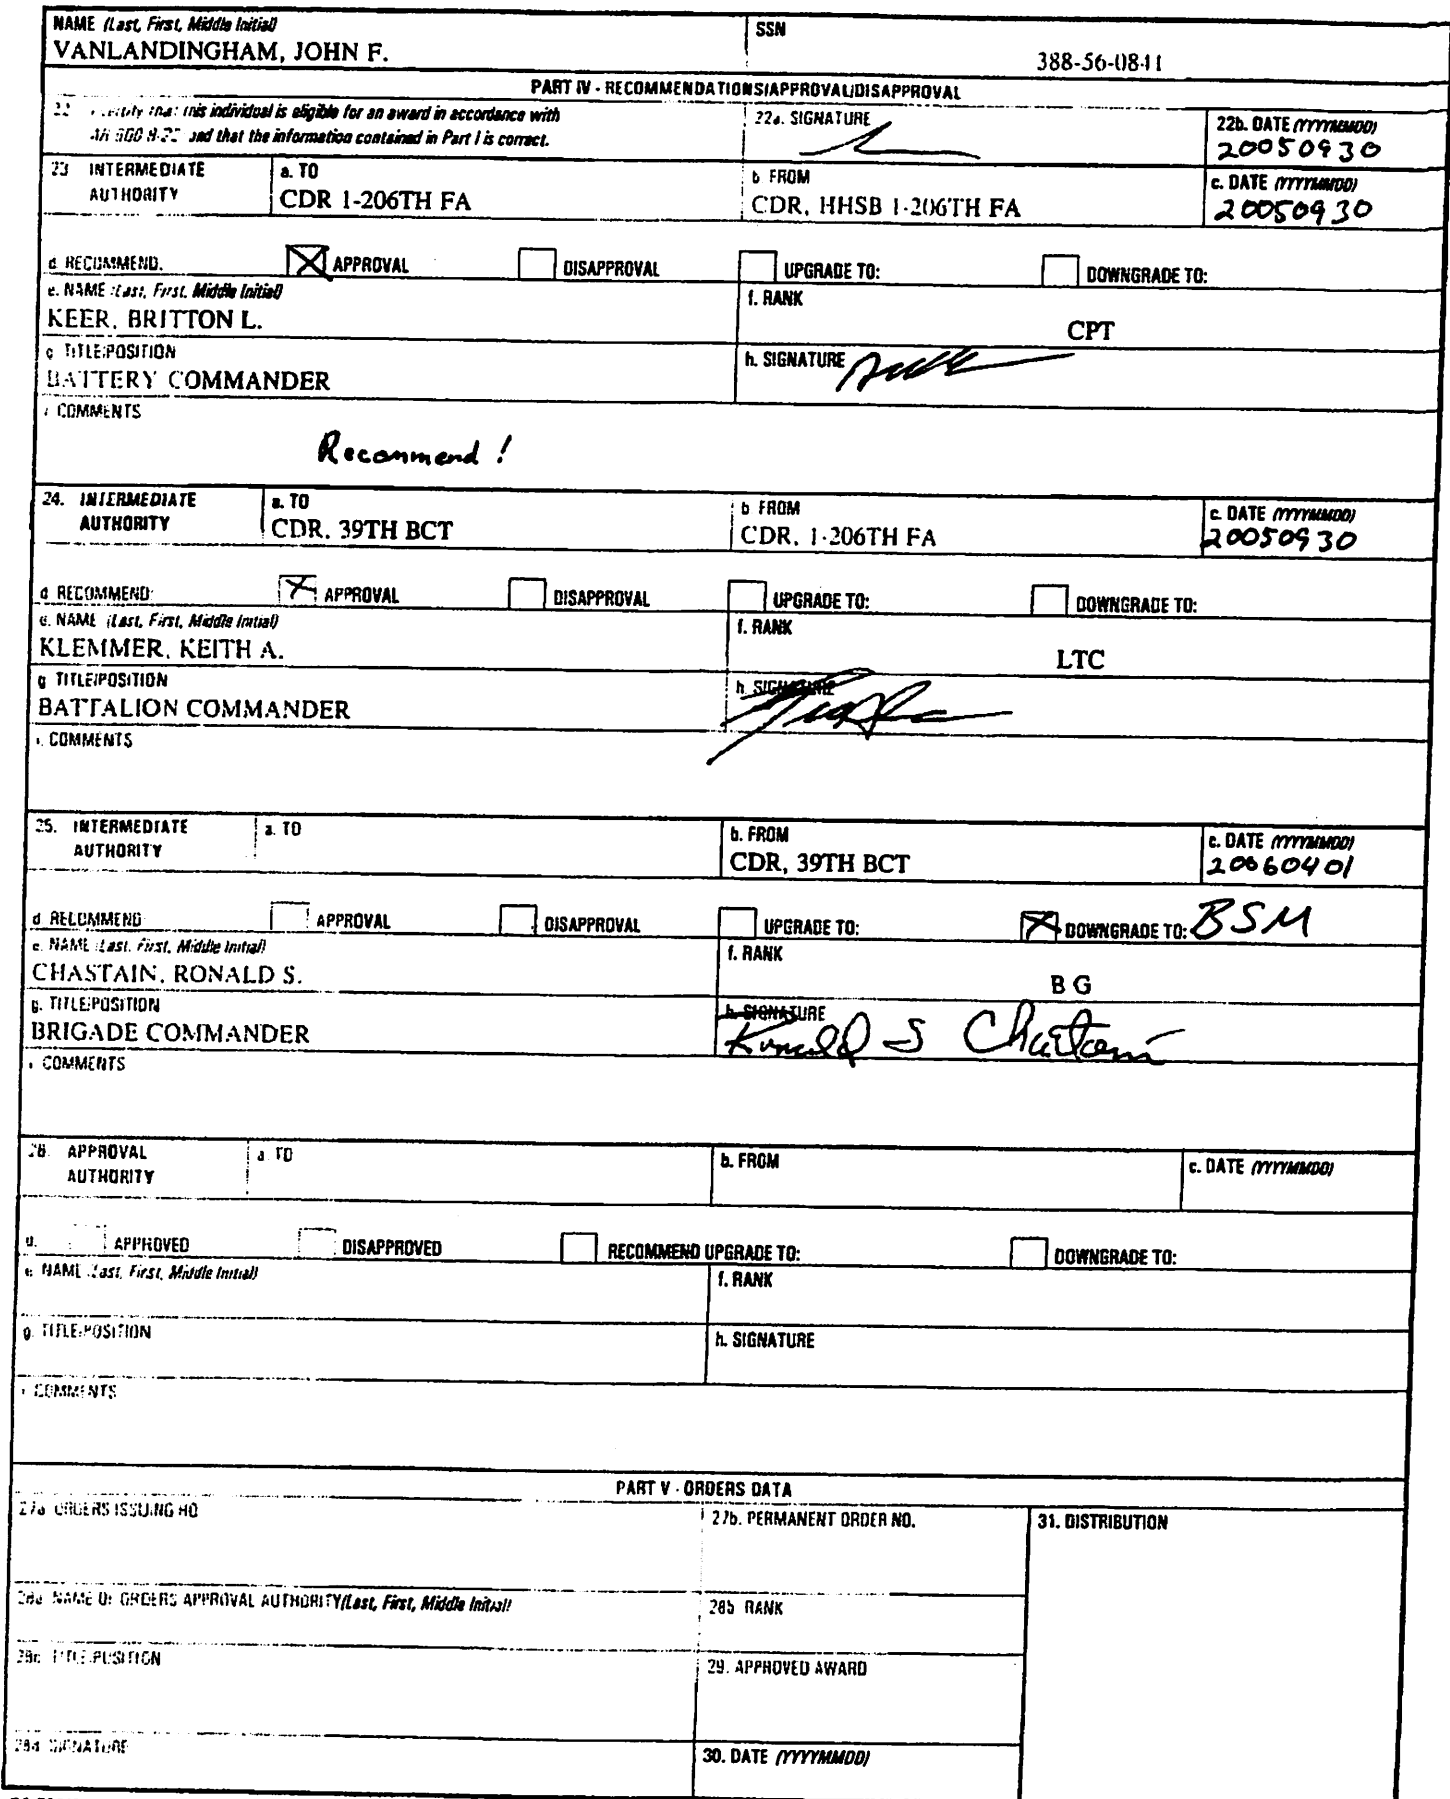 NAME (Last, First, Middle Initial)
SSN
VANLANDINGHAM, JOHN F.
388-56-0841
PART IV - RECOMMENDATIONS/APPROVAL/DISAPPROVAL
22 I certify that this individual is eligible for an award in accordance with
AR 600-8-22 and that the information contained in Part I is correct.
22a. SIGNATURE
22b. DATE (YYYYMMDD)
20050930
23 INTERMEDIATE AUTHORITY
a. TO
CDR 1-206TH FA
b FROM
CDR, HHSB 1-206TH FA
c. DATE (YYYYMMDD)
20050930
d RECOMMEND. APPROVAL DISAPPROVAL UPGRADE TO: DOWNGRADE TO:
e. NAME (Last, First, Middle Initial)
KEER, BRITTON L.
f. RANK
CPT
g TITLE/POSITION
BATTERY COMMANDER
h. SIGNATURE
i COMMENTS
Recommend!
24. INTERMEDIATE AUTHORITY
a. TO
CDR. 39TH BCT
b FROM
CDR, 1-206TH FA
c. DATE (YYYYMMDD)
20050930
d RECOMMEND: APPROVAL DISAPPROVAL UPGRADE TO: DOWNGRADE TO:
e. NAME (Last, First, Middle Initial)
KLEMMER, KEITH A.
f. RANK
LTC
g TITLE/POSITION
BATTALION COMMANDER
h. SIGNATURE
i. COMMENTS
25. INTERMEDIATE AUTHORITY
a. TO
b. FROM
CDR, 39TH BCT
c. DATE (YYYYMMDD)
20060401
d RECOMMEND APPROVAL DISAPPROVAL UPGRADE TO: DOWNGRADE TO: BSM
e. NAME (Last, First, Middle Initial)
CHASTAIN, RONALD S.
f. RANK
BG
g. TITLE/POSITION
BRIGADE COMMANDER
h. SIGNATURE
Ronald S Chastain
i COMMENTS
26. APPROVAL AUTHORITY
a. TO
b. FROM
c. DATE (YYYYMMDD)
d. APPROVED DISAPPROVED RECOMMEND UPGRADE TO: DOWNGRADE TO:
e. NAME (Last, First, Middle Initial)
f. RANK
g. TITLE/POSITION
h. SIGNATURE
i COMMENTS
PART V - ORDERS DATA
27a ORDERS ISSUING HQ
27b. PERMANENT ORDER NO.
31. DISTRIBUTION
28a NAME OF ORDERS APPROVAL AUTHORITY (Last, First, Middle Initial)
28b RANK
28c TITLE/POSITION
29. APPROVED AWARD
28d SIGNATURE
30. DATE (YYYYMMDD)